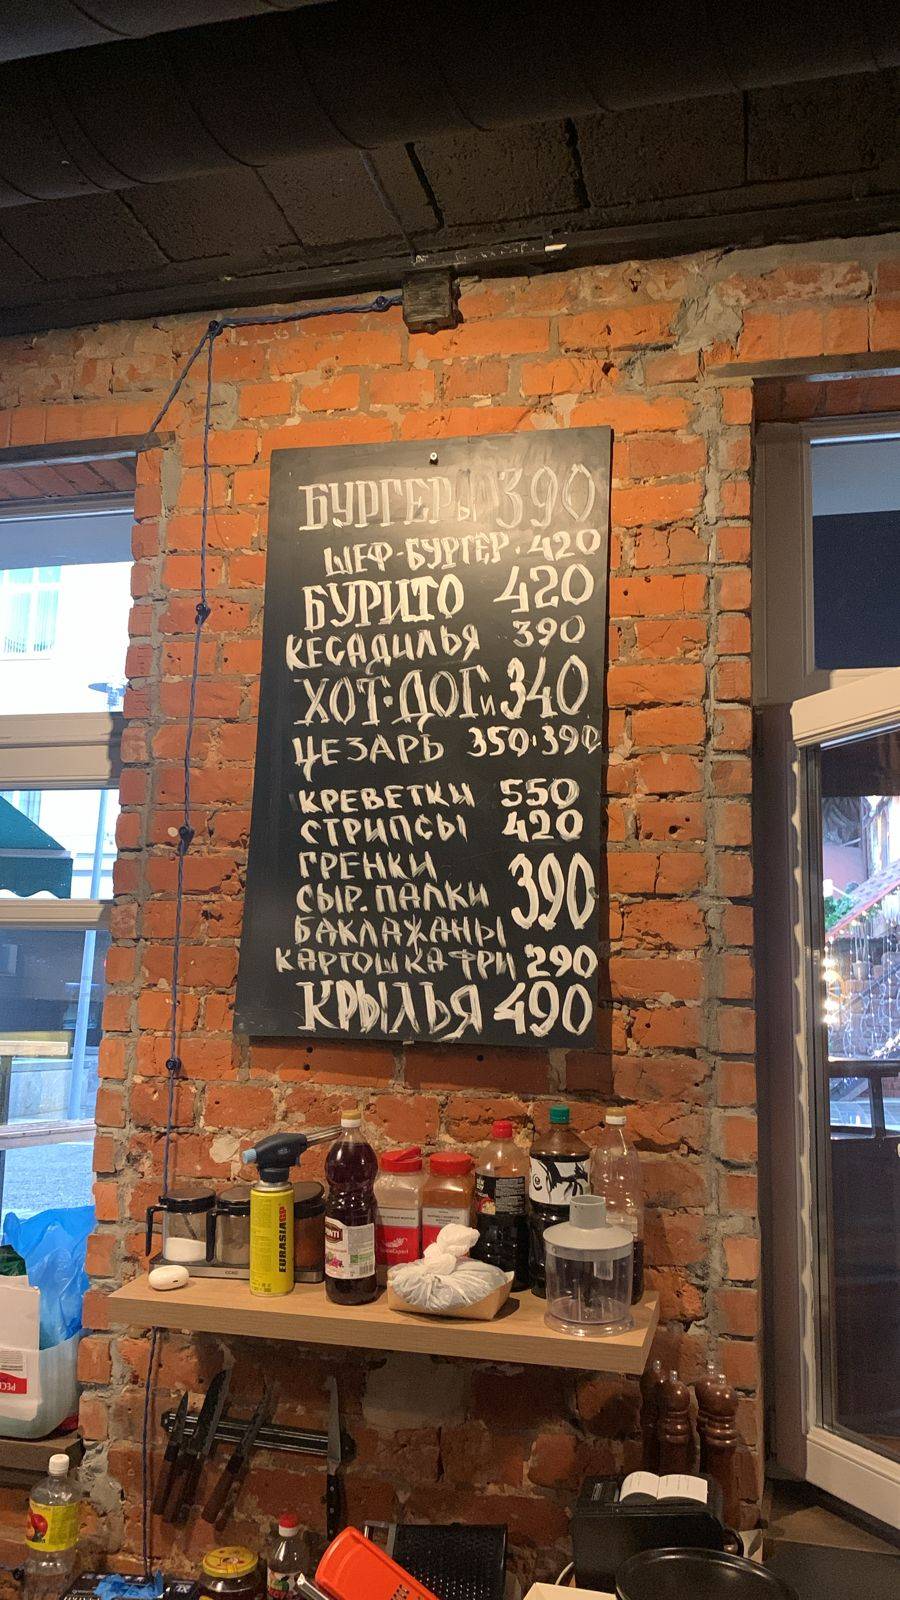 БУРГЕРЫ 390
ШЕФ-БУРГЕР. 420
БУРИТО 420
КЕСАДИЛЬЯ 390
ХОТ-ДОГи 340
ЦЕЗАРЬ 350·390
КРЕВЕТКИ 550
СТРИПСЫ 420
ГРЕНКИ
СЫР. ПАЛКИ 390
БАКЛАЖАНЫ
КАРТОШКА ФРИ 290
КРЫЛЬЯ 490
EURASIA